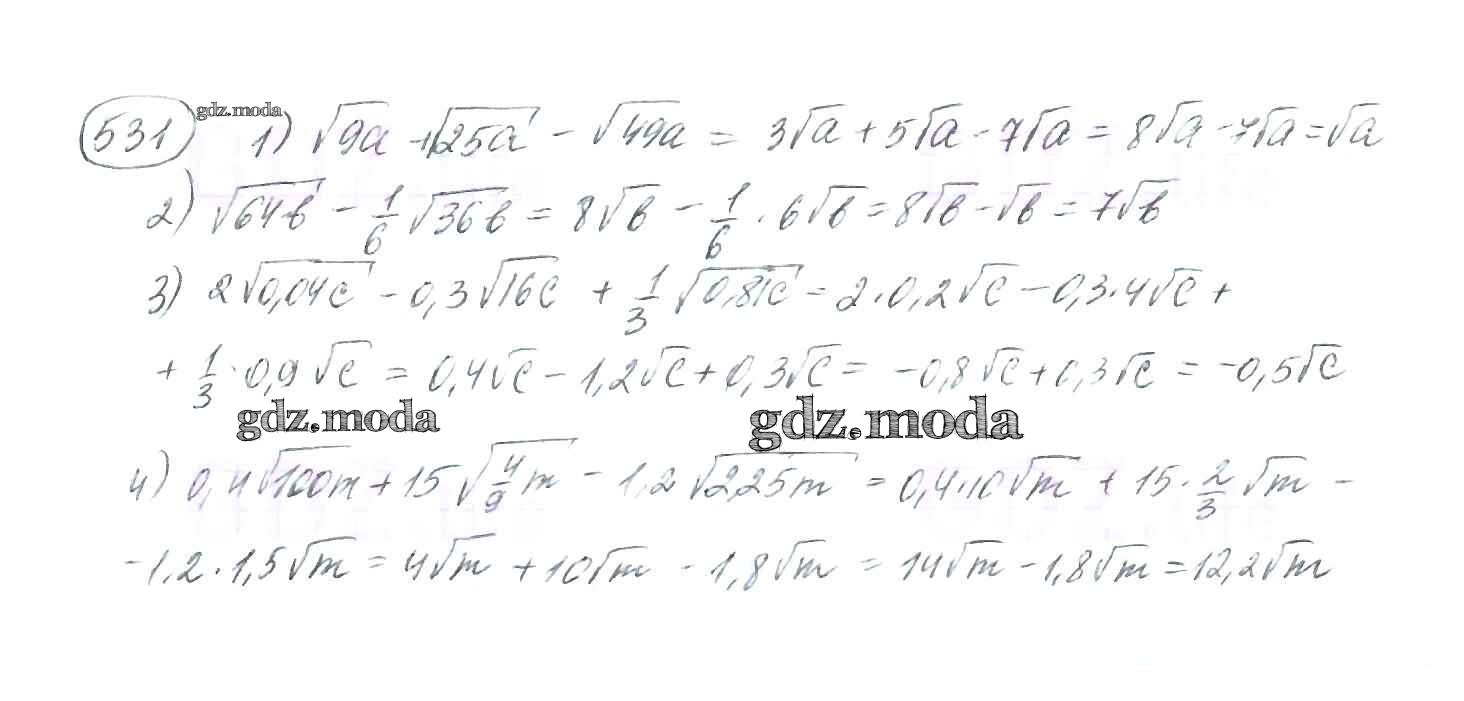 531 gdz.moda 1) √9a + √25a − √49a = 3√a + 5√a − 7√a = 8√a − 7√a = √a
2) √64в − 1/6 √36в = 8√в − 1/6 · 6√в = 8√в − √в = 7√в
3) 2√0,04c − 0,3√16c + 1/3 √0,81c = 2·0,2√c − 0,3·4√c +
+ 1/3 · 0,9√c = 0,4√c − 1,2√c + 0,3√c = −0,8√c + 0,3√c = −0,5√c
gdz.moda gdz.moda
4) 0,4√100m + 15√4/9 m − 1,2√2,25m = 0,4·10√m + 15 · 2/3 √m −
− 1,2 · 1,5√m = 4√m + 10√m − 1,8√m = 14√m − 1,8√m = 12,2√m